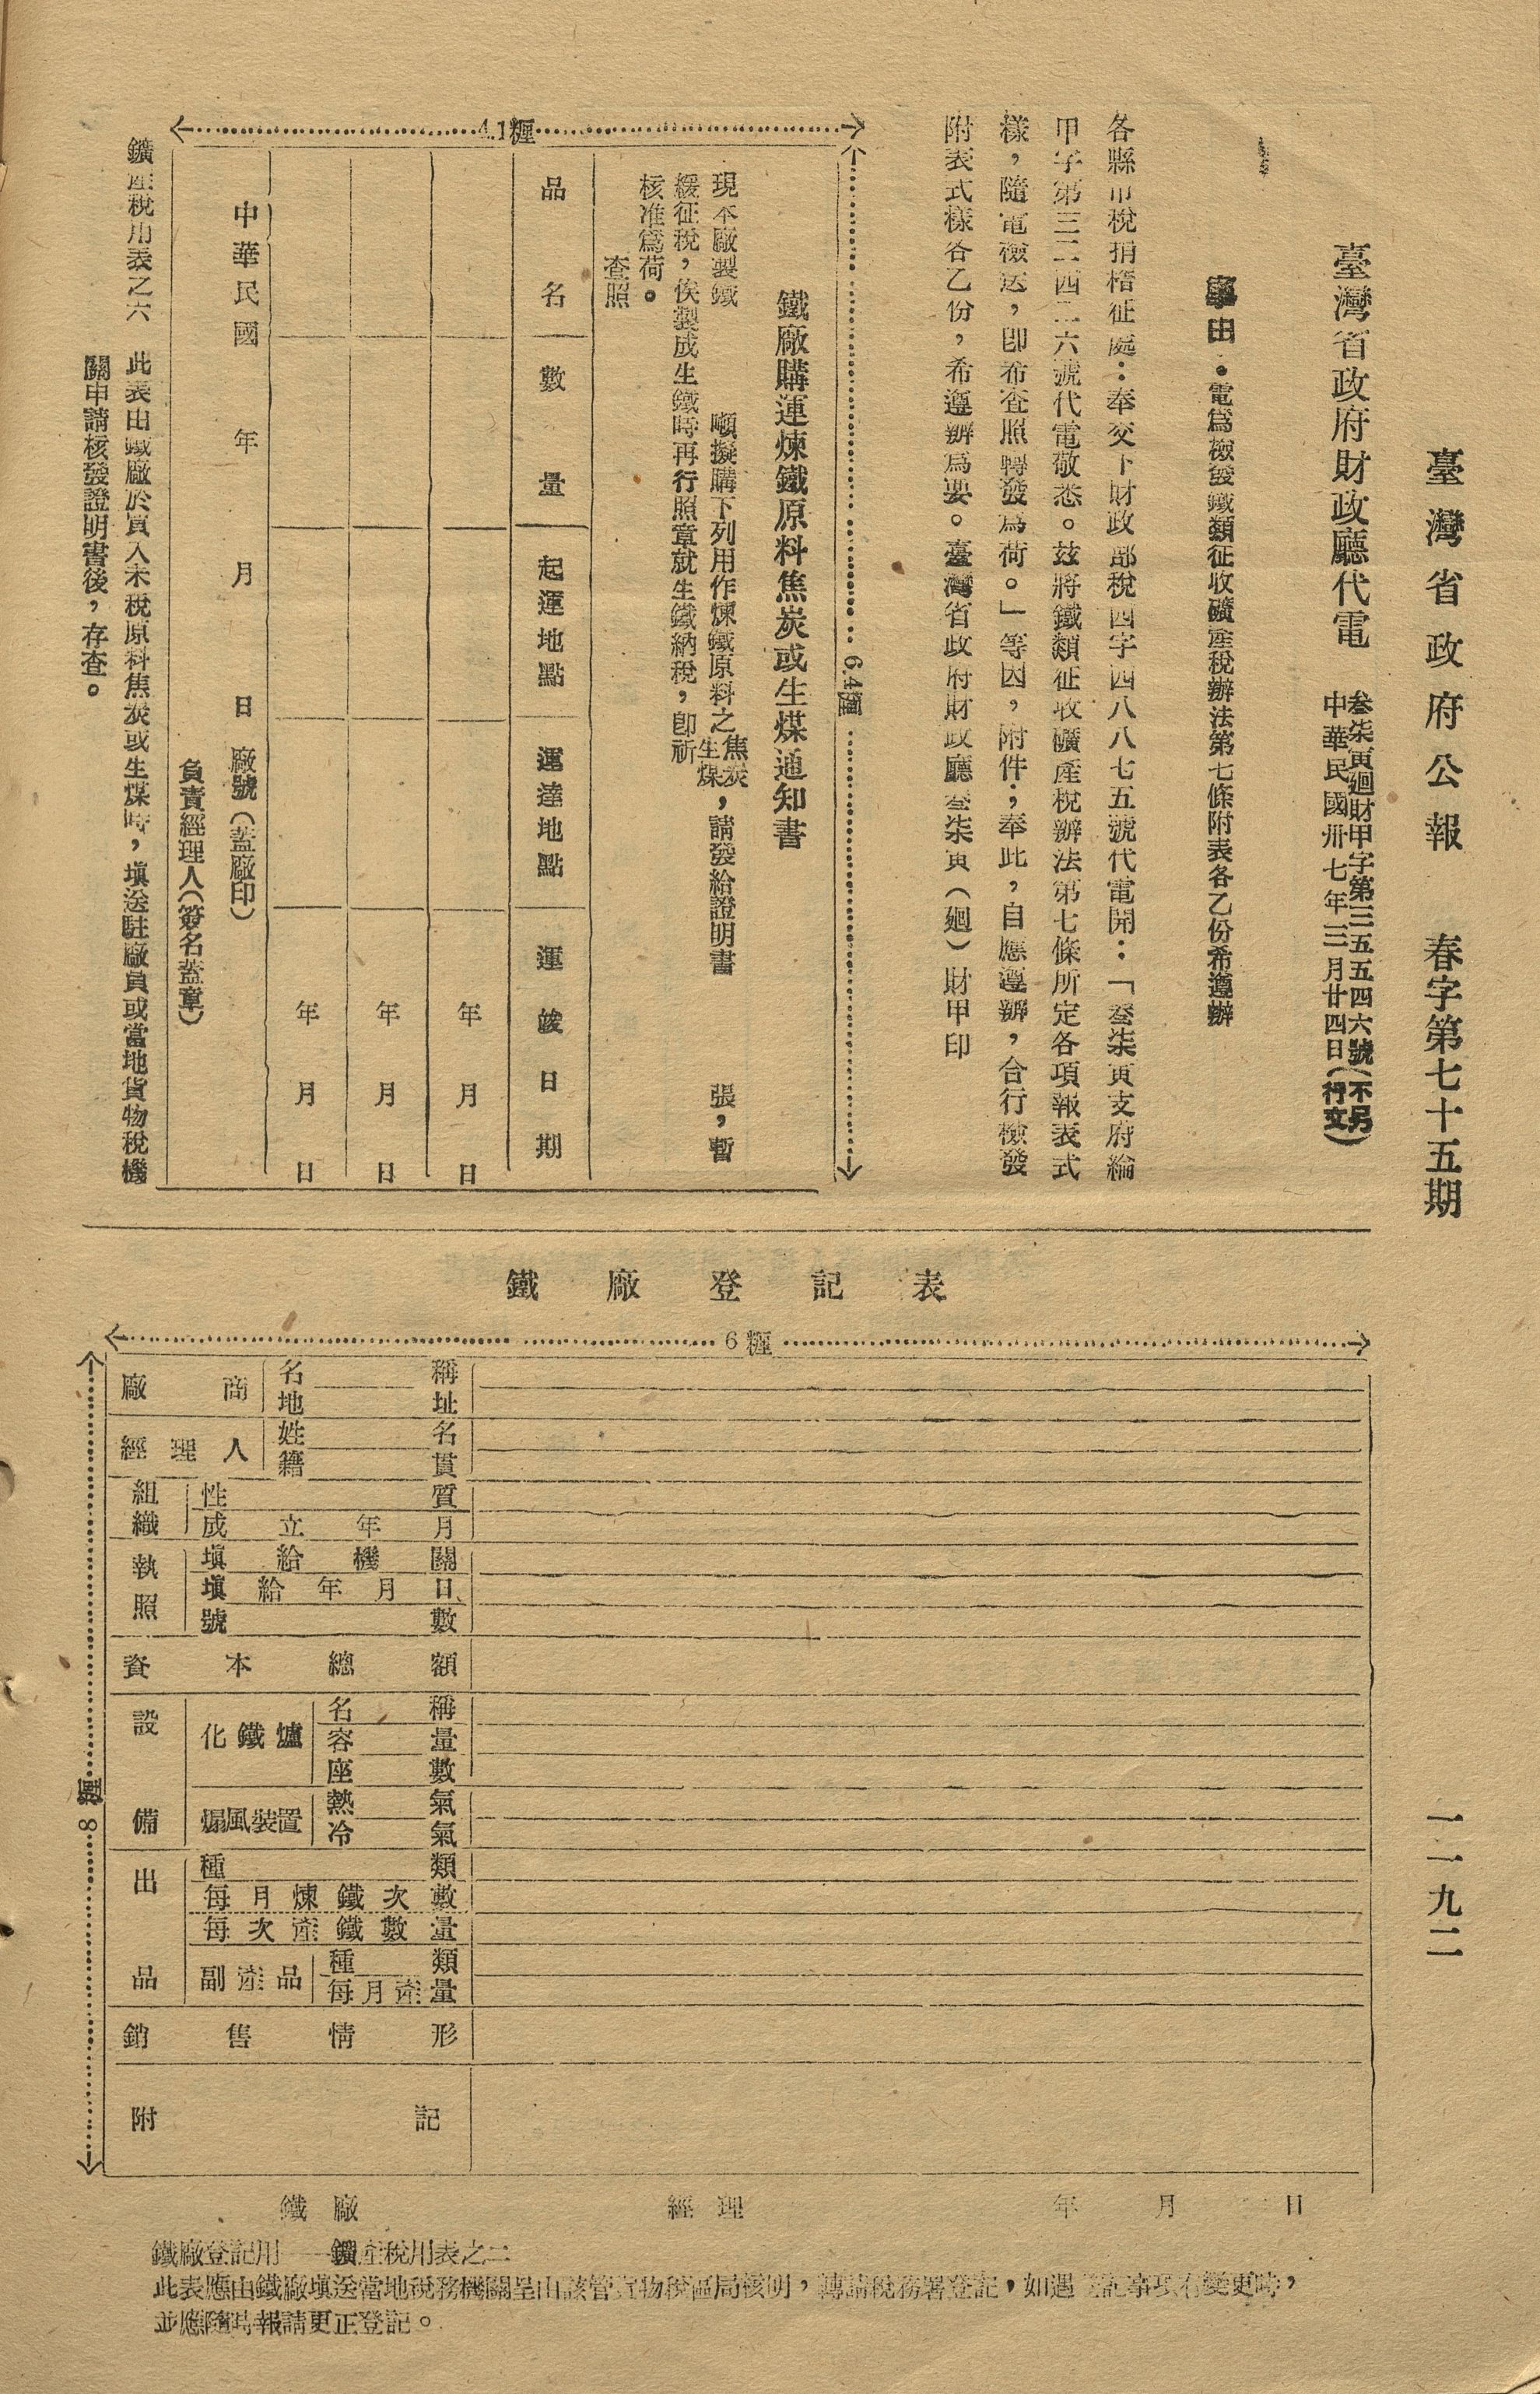 臺灣省政府公報　春字第七十五期　一一九二
臺灣省政府財政廳代電
叁柒寅廻財甲字第三五五四六號（不另
中華民國卅七年三月廿四日　行文）
事由：電為檢發鐵類征收礦產稅辦法第七條附表各乙份希遵辦
各縣市稅捐稽征處：奉交下財政部稅四字四八八七五號代電開：「叁柒寅支府綸
甲字第三二四二六號代電敬悉。茲將鐵類征收礦產稅辦法第七條所定各項報表式
樣，隨電檢送，卽希查照轉發為荷。」等因，附件；奉此，自應遵辦，合行檢發
附表式樣各乙份，希遵辦為要。臺灣省政府財政廳叁柒寅（廻）財甲印
6.4糎
4.1糎
鐵廠購運煉鐵原料焦炭或生煤通知書
現本廠製鐵　噸擬購下列用作煉鐵原料之焦炭生煤，請發給證明書　張，暫
緩征稅，俟製成生鐵時再行照章就生鐵納稅，卽祈
核准爲荷。
查照
品名　數量　起運地點　運達地點　運竣日期
年　月　日
年　月　日
年　月　日
中華民國　年　月　日　廠號（蓋廠印）
負責經理人（簽名蓋章）
鑛產稅用表之六　此表由鐵廠於買入未稅原料焦炭或生煤時，填送駐廠員或當地貨物稅機
關申請核發證明書後，存查。
鐵廠登記表
6糎
8糎
廠商　名稱
地址
經理人　姓名
籍貫
組織　性質
成立年月
執照　填給機關
填給年月日
號數
資本總額
設備　化鐵爐　名稱
容量
座數
煽風裝置　熱氣
冷氣
出品　種類
每月煉鐵次數
每次產鐵數量
副產品　種類
每月產量
銷售情形
附記
鐵廠　經理　年　月　日
鐵廠登記用——鑛產稅用表之二
此表應由鐵廠填送當地稅務機關呈由該管貨物稅區局核明，轉請稅務署登記，如遇　記事項有變更時，
並應隨時報請更正登記。